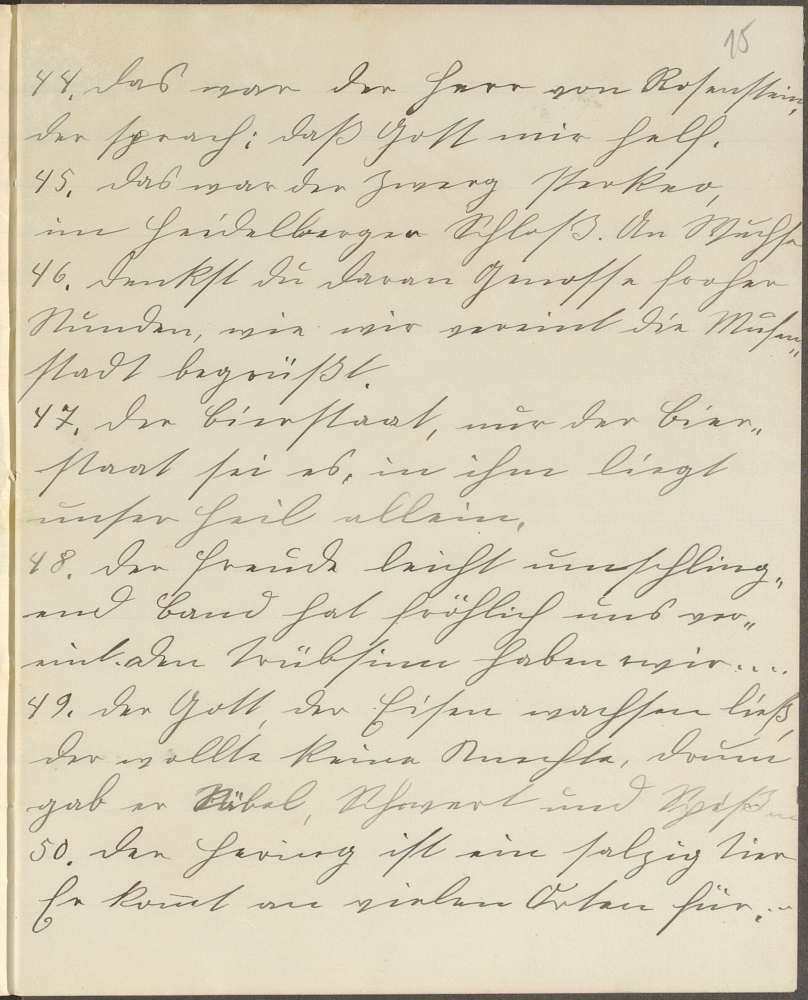 15
44. Das war der Herr von Rosenstein,
der sprach: daß Gott mir helf.
45. Das war der Zwerg Perkeo,
im Heidelberger Schloß. An Wuchse
46. Denkst du daran Genosse froher
Stunden, wie wir vereint die Musen„
stadt begrüßt.
47. Der Bierstaat, nur der Bier„
staat sei es, in ihm liegt
unser Heil allein.
48. Der Freude leicht umschling„
end Band hat fröhlich uns ver„
eint. Den Trübsinn haben wir....
49. Der Gott, der Eisen wachsen ließ,
der wollte keine Knechte, drum
gab er Säbel, Schwert und Spieß
50. Der Hering ist ein salzig Tier
Er kom̄t an vielen Orten für.